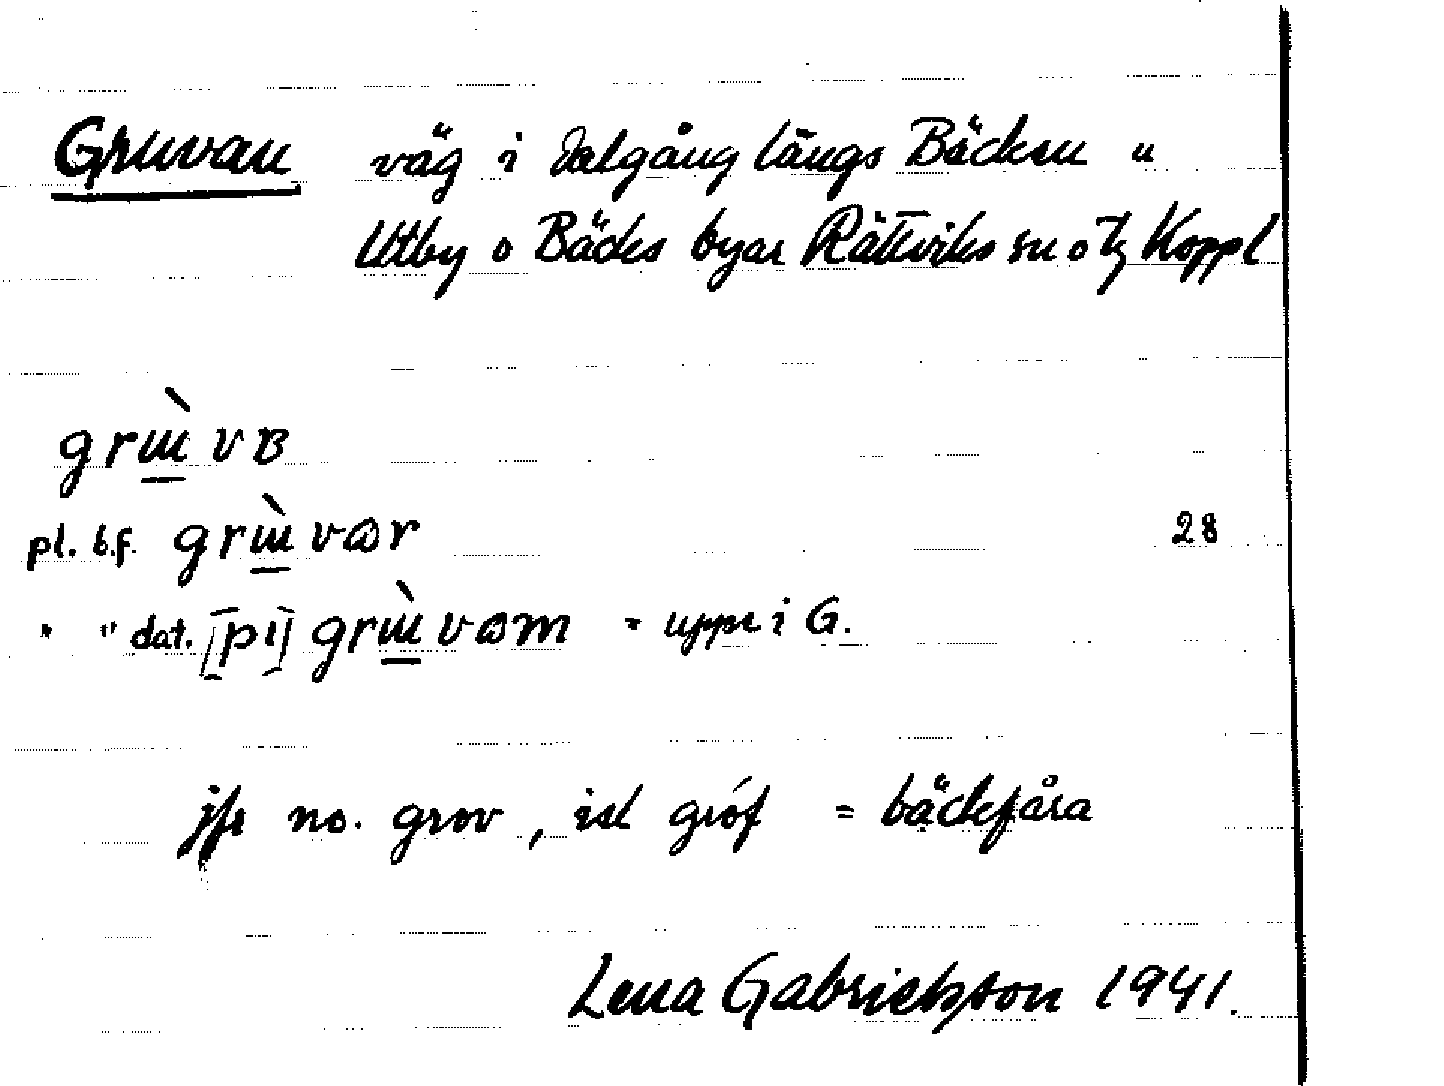 Gruvan väg i dalgång längs Bäcken u
Utby o Bäcks byar Rättviks sn o tg Koppl
grɯ̀vʙ
pl. b.f. grɯ̀vɷr 28
" " dat. [pı] grɯ̀vɷm = uppe i G.
jfr no. grov, isl gróf = bäckfåra
Lena Gabrielsson 1941.